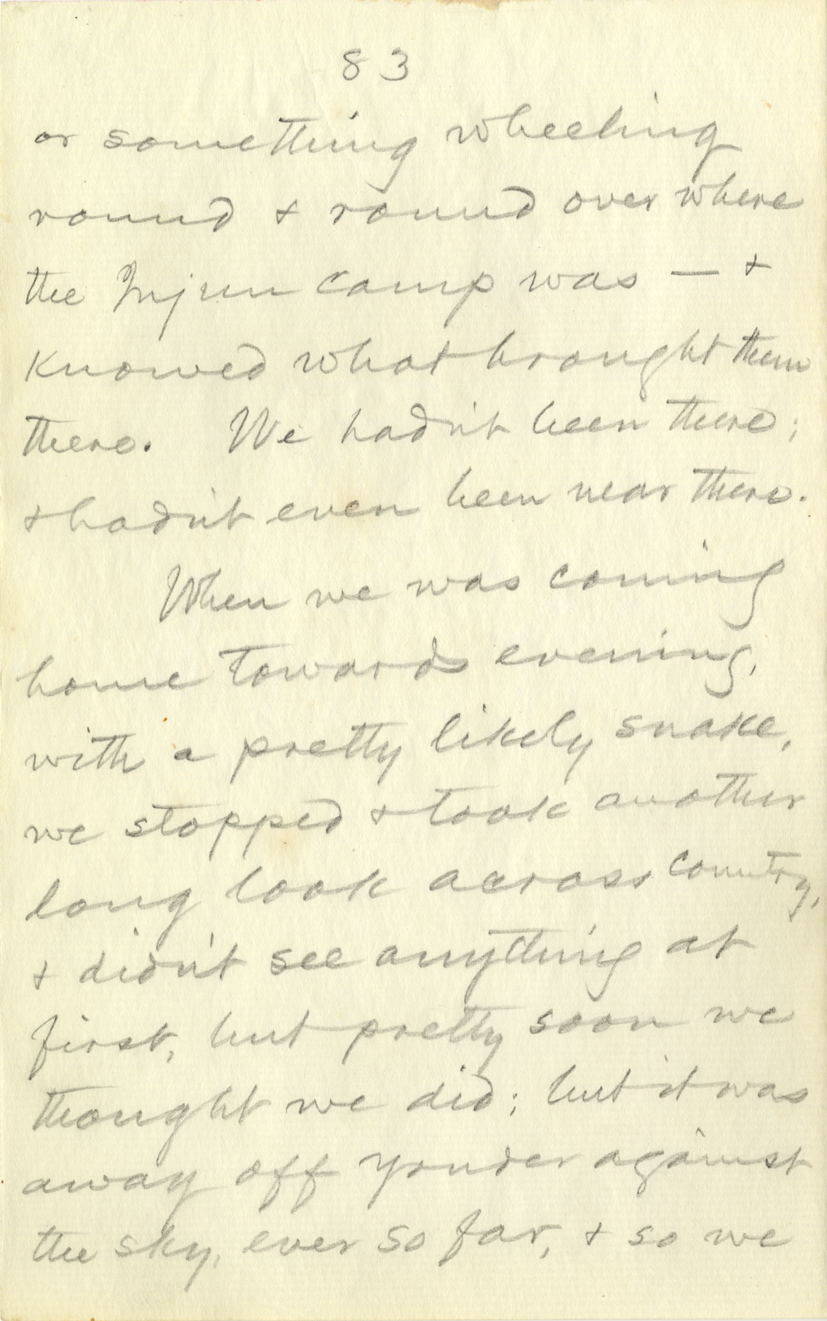 83
or something wheeling
round & round over where
the Injun camp was — &
knowed what brought them
there. We hadn't been there;
& hadn't even been near there.
When we was coming
home towards evening,
with a pretty likely snake,
we stopped & took another
long look across country,
& didn't see anything at
first, but pretty soon we
thought we did; but it was
away off yonder against
the sky, ever so far, & so we